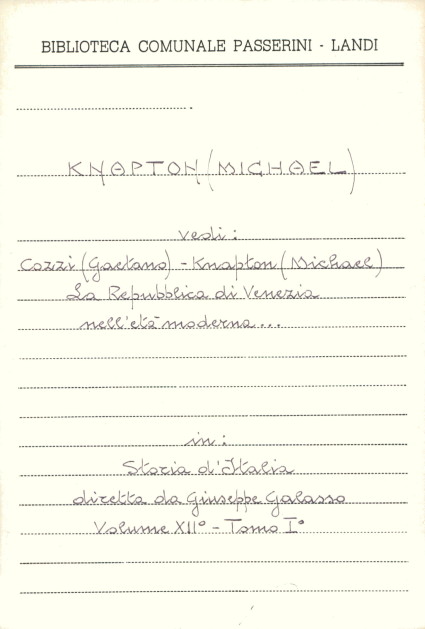 BIBLIOTECA COMUNALE PASSERINI - LANDI
KNAPTON (MICHAEL)
vedi:
Cozzi (Gaetano) - Knapton (Michael)
La Repubblica di Venezia
nell'età moderna...
in:
Storia d'Italia
diretta da Giuseppe Galasso
Volume XII° - Tomo I°